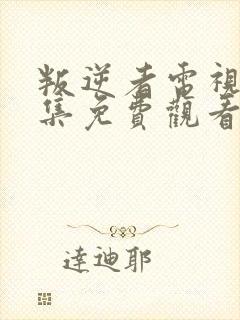 叛逆者電視
集免費觀看
達迪耶